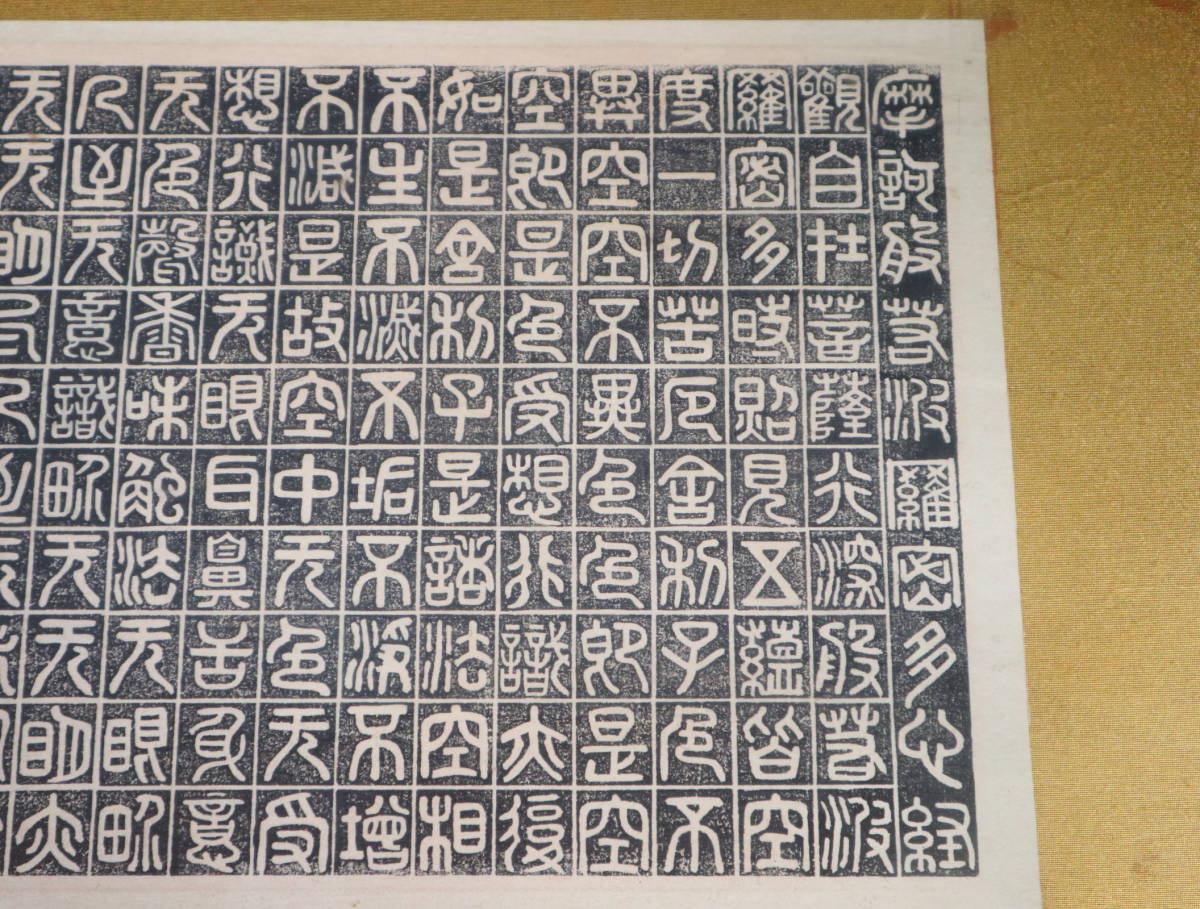 摩訶般若波羅密多心経
觀自在菩薩行深般若波
羅密多時照見五蘊皆空
度一切苦厄舍利子色不
異空空不異色色即是空
空即是色受想行識亦復
如是舍利子是諸法空相
不生不滅不垢不淨不增
不減是故空中无色无受
想行識无眼耳鼻舌身意
无色聲香味觸法无眼界
乃至无意識界无无明亦
无无明